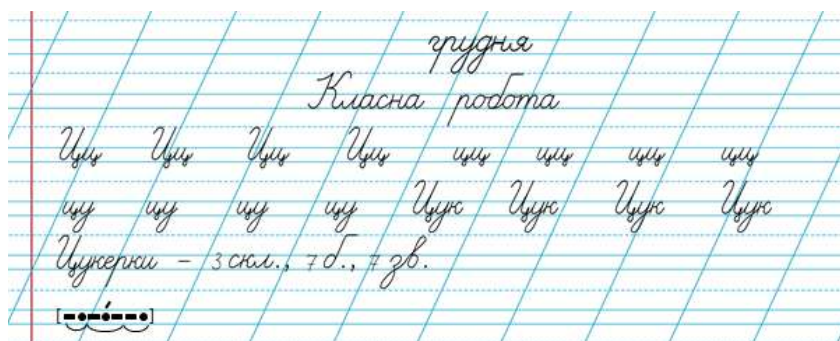 грудня
Класна робота
Цц Цц Цц Цц цц цц цц цц
цу цу цу цу Цук Цук Цук Цук
Цукерки – 3 скл., 7 б., 7 зв.